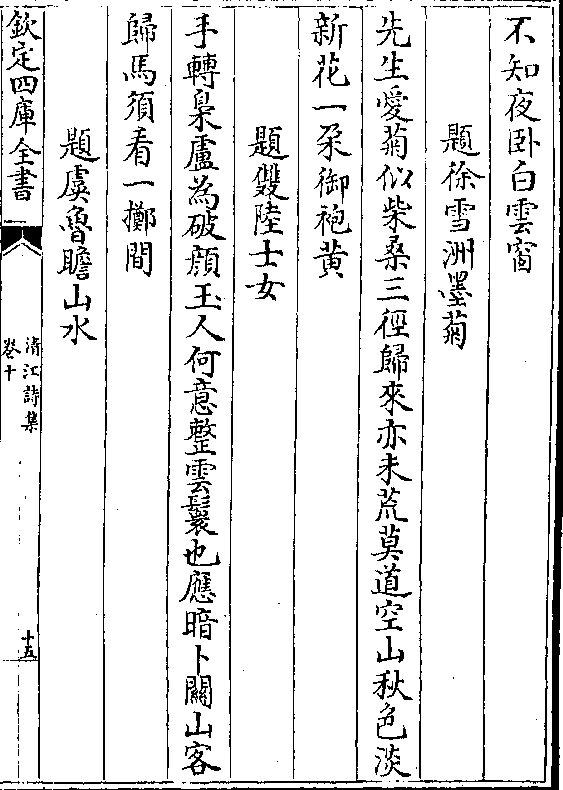 不知夜卧白雲窗
題徐雪洲墨菊
先生愛菊似柴桑三徑歸來亦未荒莫道空山秋色淡
新花一朶御袍黄
題雙陸士女
手轉梟盧為破顔玉人何意整雲鬟也應暗卜關山客
歸馬須看一擲間
題虞魯瞻山水
欽定四庫全書
清江詩集
卷十
十五